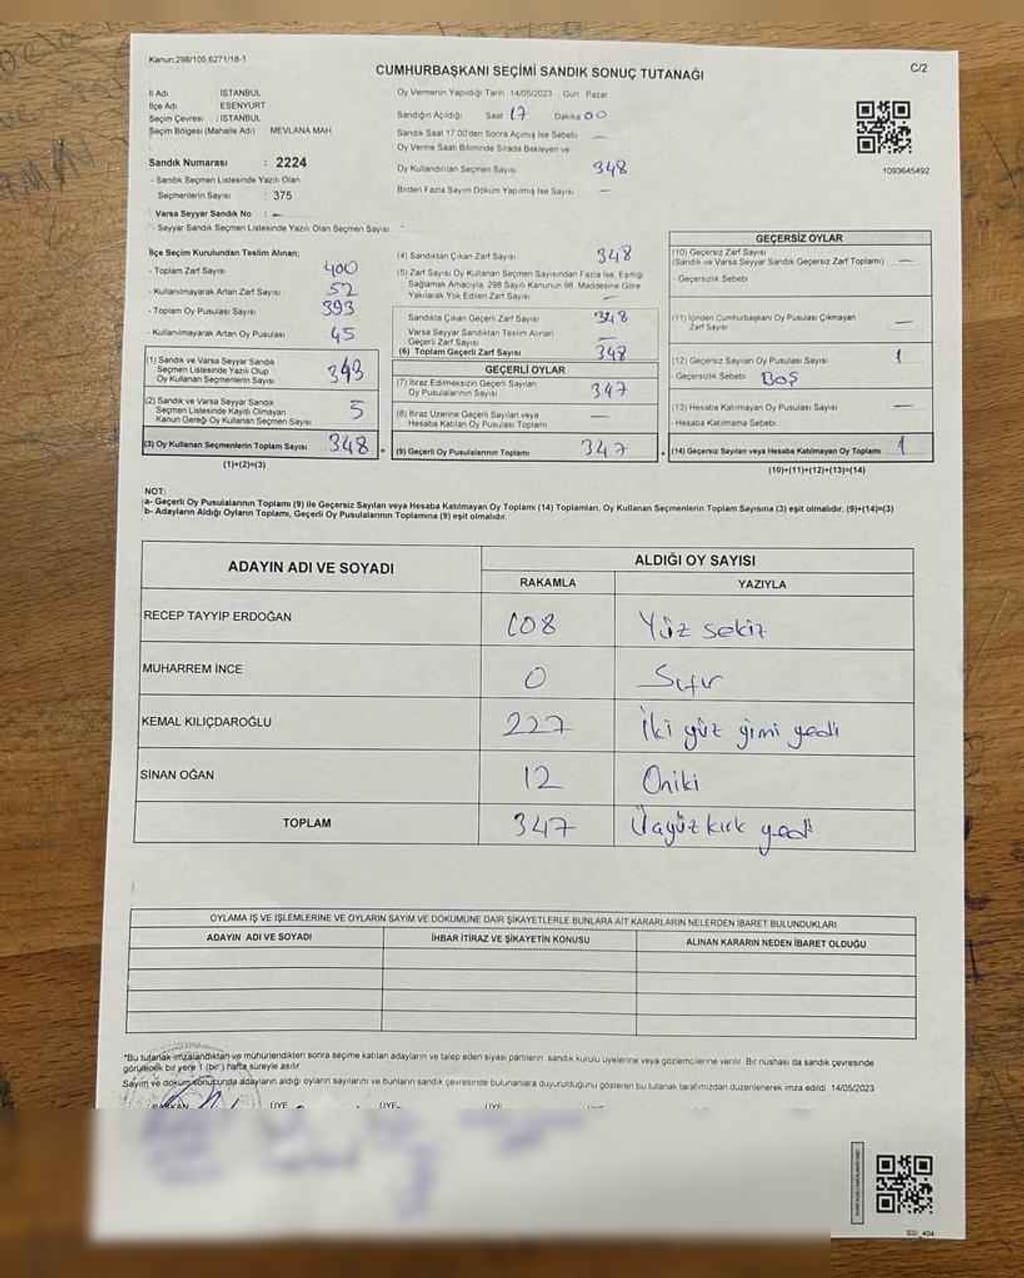 Kanun:298/105,6271/18-1
CUMHURBAŞKANI SEÇİMİ SANDIK SONUÇ TUTANAĞI
C/2
İl Adı : İSTANBUL
İlçe Adı : ESENYURT
Seçim Çevresi : İSTANBUL
Seçim Bölgesi (Mahalle Adı) MEVLANA MAH
Sandık Numarası : 2224
- Sandık Seçmen Listesinde Yazılı Olan
Seçmenlerin Sayısı : 375
Varsa Seyyar Sandık No : -
- Seyyar Sandık Seçmen Listesinde Yazılı Olan Seçmen Sayısı: -
Oy Vermenin Yapıldığı Tarih 14/05/2023 Gün Pazar
Sandığın Açıldığı: Saat 17 Dakika 00
Sandık Saat 17:00'den Sonra Açılmış İse Sebebi —
Oy Verme Saati Bitiminde Sırada Bekleyen ve
Oy Kullandırılan Seçmen Sayısı 348
Birden Fazla Sayım Döküm Yapılmış İse Sayısı —
1093645492
İlçe Seçim Kurulundan Teslim Alınan;
- Toplam Zarf Sayısı 400
- Kullanılmayarak Artan Zarf Sayısı 52
- Toplam Oy Pusulası Sayısı 393
- Kullanılmayarak Artan Oy Pusulası 45
(1) Sandık ve Varsa Seyyar Sandık
Seçmen Listesinde Yazılı Olup
Oy Kullanan Seçmenlerin Sayısı 343
(2) Sandık ve Varsa Seyyar Sandık
Seçmen Listesinde Kaydı Olmayan
Kanun Gereği Oy Kullanan Seçmen Sayısı 5
(3) Oy Kullanan Seçmenlerin Toplam Sayısı 348
(1)+(2)=(3)
(4) Sandıktan Çıkan Zarf Sayısı 348
(5) Zarf Sayısı Oy Kullanan Seçmen Sayısından Fazla İse, Eşitliği
Sağlamak Amacıyla, 298 Sayılı Kanunun 98. Maddesine Göre
Yakılarak Yok Edilen Zarf Sayısı —
Sandıkta Çıkan Geçerli Zarf Sayısı 348
Varsa Seyyar Sandıktan Teslim Alınan
Geçerli Zarf Sayısı —
(6) Toplam Geçerli Zarf Sayısı 348
GEÇERLİ OYLAR
(7) İtiraz Edilmeksizin Geçerli Sayılan
Oy Pusulalarının Sayısı 347
(8) İtiraz Üzerine Geçerli Sayılan veya
Hesaba Katılan Oy Pusulası Toplamı —
(9) Geçerli Oy Pusulalarının Toplamı 347
GEÇERSİZ OYLAR
(10) Geçersiz Zarf Sayısı
(Sandık ve Varsa Seyyar Sandık Geçersiz Zarf Toplamı) —
- Geçersizlik Sebebi:
(11) İçinden Cumhurbaşkanı Oy Pusulası Çıkmayan
Zarf Sayısı —
(12) Geçersiz Sayılan Oy Pusulası Sayısı 1
- Geçersizlik Sebebi: BOŞ
(13) Hesaba Katılmayan Oy Pusulası Sayısı —
- Hesaba Katılmama Sebebi:
(14) Geçersiz Sayılan veya Hesaba Katılmayan Oy Toplamı 1
(10)+(11)+(12)+(13)=(14)
NOT:
a- Geçerli Oy Pusulalarının Toplamı (9) ile Geçersiz Sayılan veya Hesaba Katılmayan Oy Toplamı (14) Toplamları, Oy Kullanan Seçmenlerin Toplam Sayısına (3) eşit olmalıdır. (9)+(14)=(3)
b- Adayların Aldığı Oyların Toplamı, Geçerli Oy Pusulalarının Toplamına (9) eşit olmalıdır.
ADAYIN ADI VE SOYADI ALDIĞI OY SAYISI
RAKAMLA YAZIYLA
RECEP TAYYİP ERDOĞAN 108 Yüz sekiz
MUHARREM İNCE 0 Sıfır
KEMAL KILIÇDAROĞLU 227 İki yüz yimi yedi
SİNAN OĞAN 12 Oniki
TOPLAM 347 Üçyüz kırk yedi
OYLAMA İŞ VE İŞLEMLERİNE VE OYLARIN SAYIM VE DÖKÜMÜNE DAİR ŞİKAYETLERLE BUNLARA AİT KARARLARIN NELERDEN İBARET BULUNDUKLARI
ADAYIN ADI VE SOYADI İHBAR İTİRAZ VE ŞİKAYETİN KONUSU ALINAN KARARIN NEDEN İBARET OLDUĞU
*Bu tutanak imzalandıktan ve mühürlendikten sonra seçime katılan adayların ve talep eden siyasi partilerin sandık kurulu üyelerine veya gözlemcilerine verilir. Bir nüshası da sandık çevresinde
görülecek bir yere 1 (bir) hafta süreyle asılır.
Sayım ve döküm sonucunda adayların aldığı oyların sayılarını ve bunların sandık çevresinde bulunanlara duyurulduğunu gösteren bu tutanak tarafımızdan düzenlenerek imza edildi. 14/05/2023
BAŞKAN ÜYE ÜYE ÜYE ÜYE